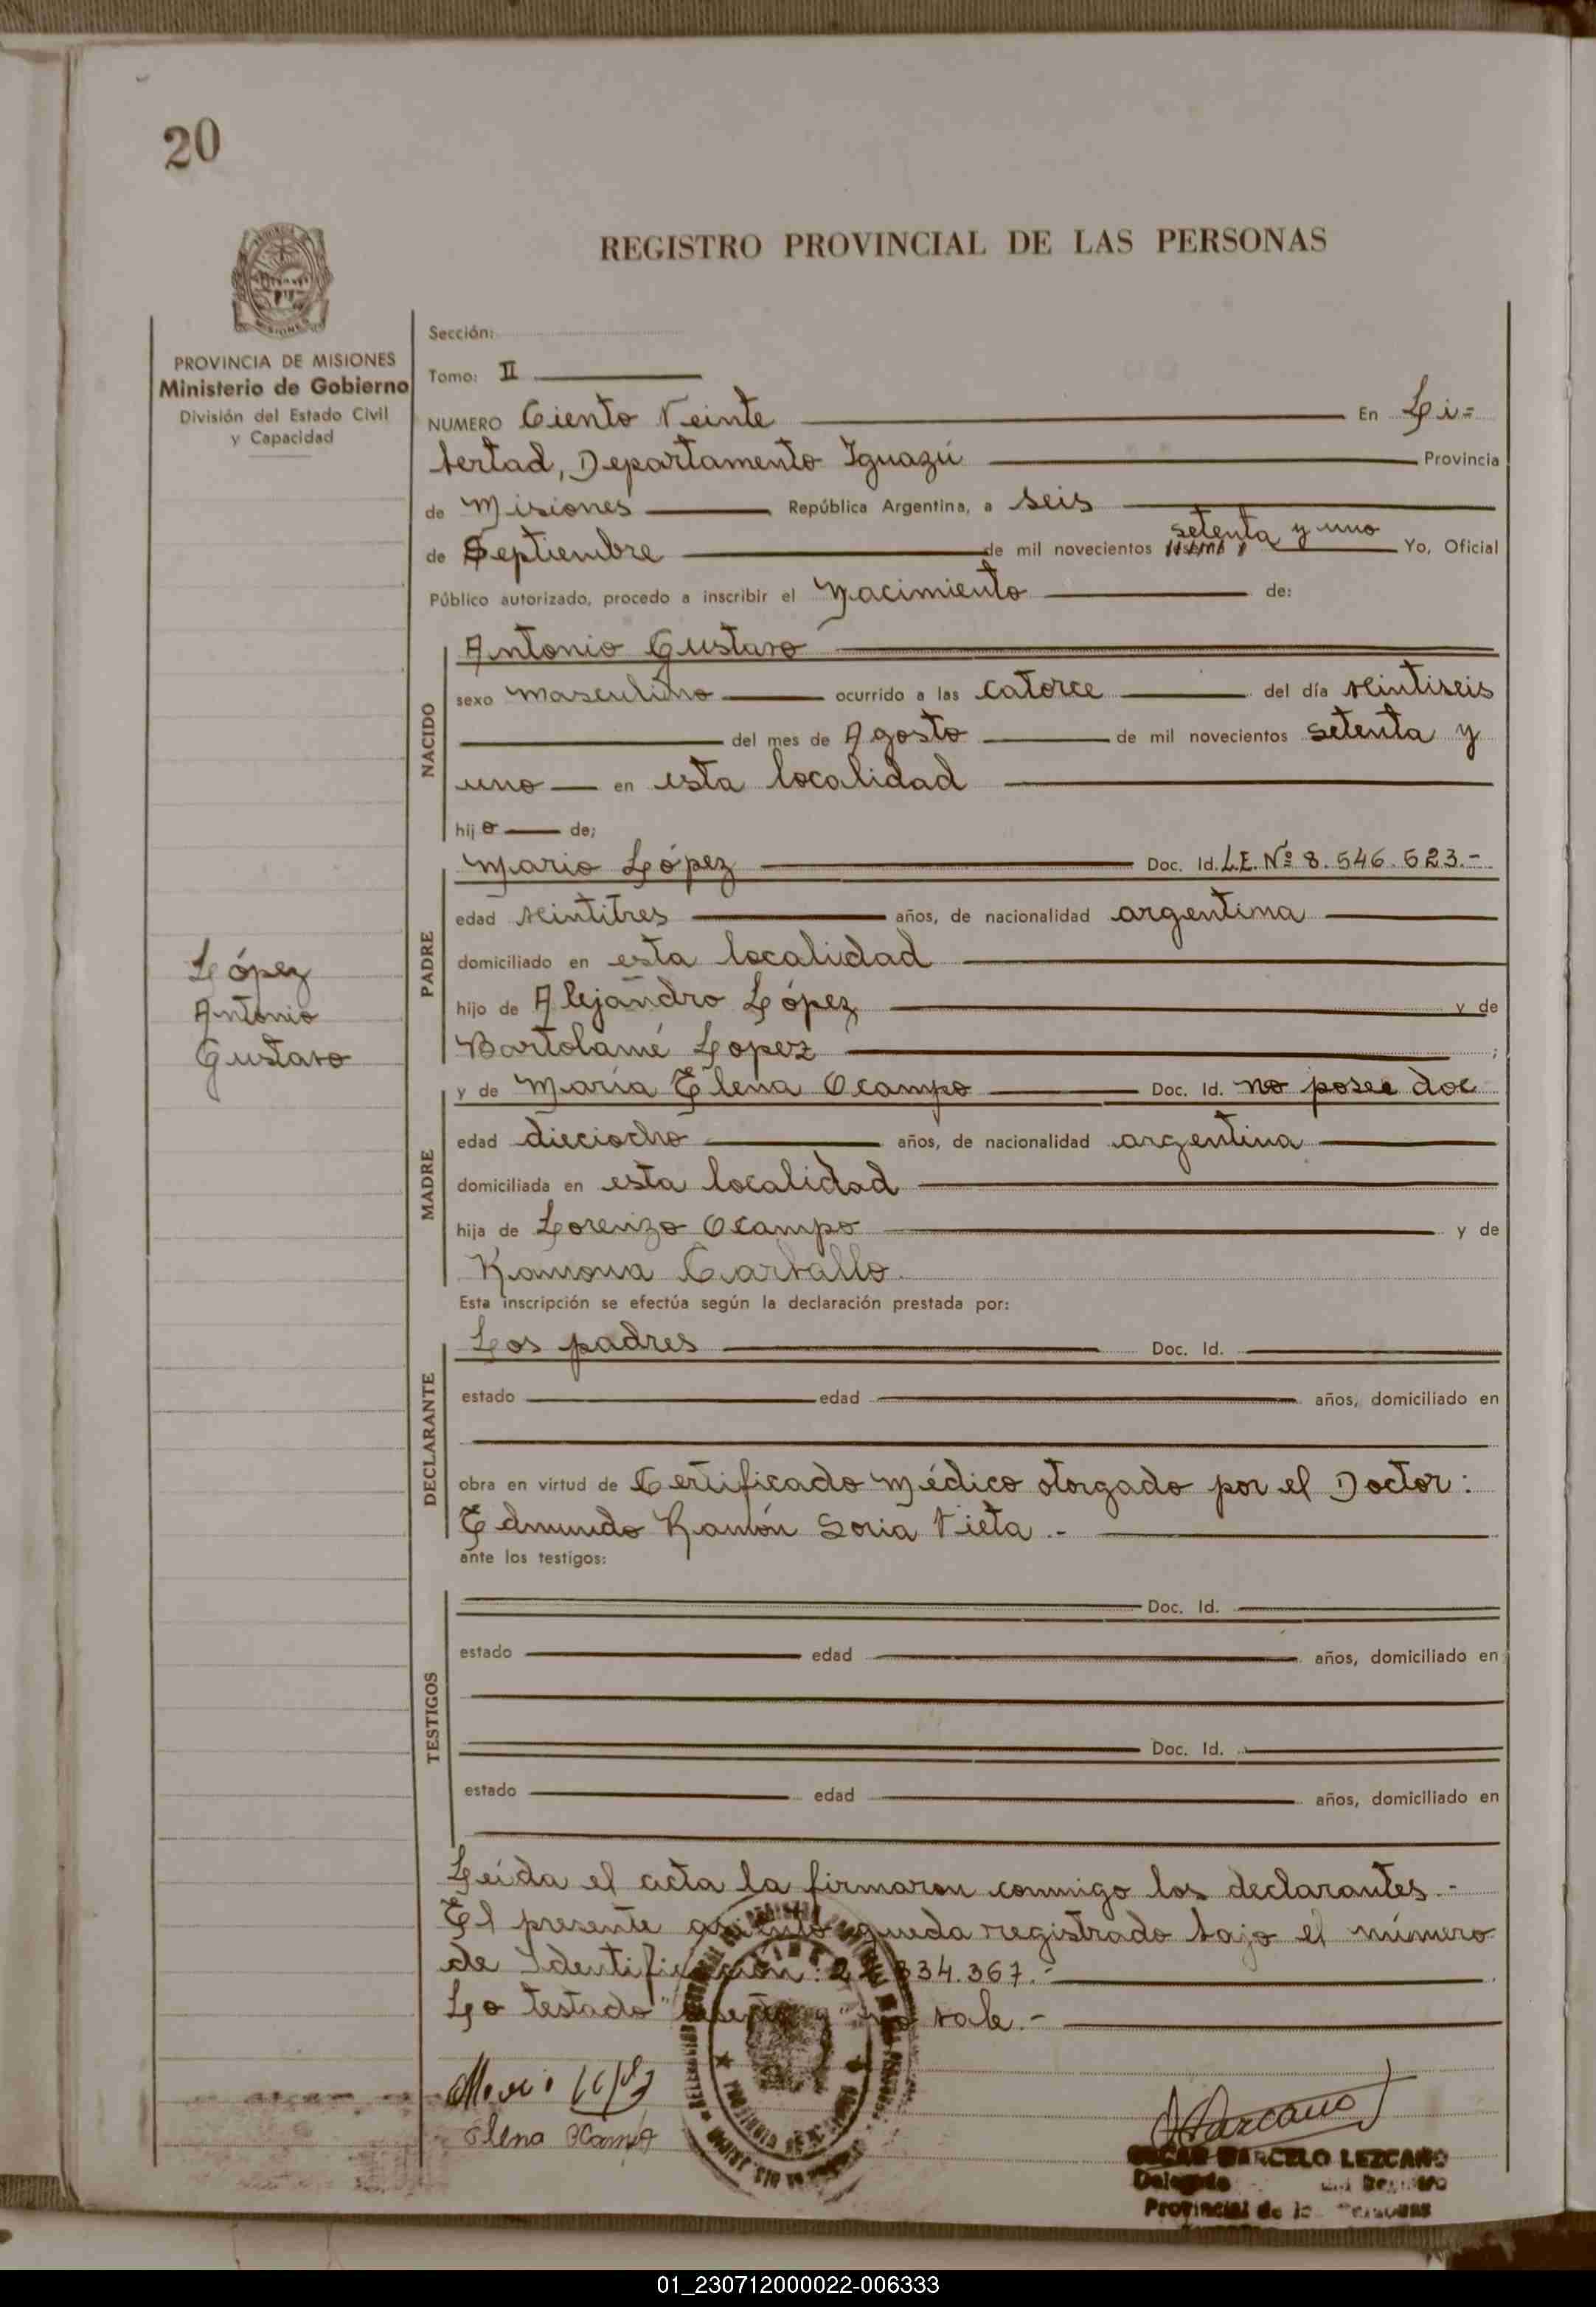 20
REGISTRO PROVINCIAL DE LAS PERSONAS
PROVINCIA DE MISIONES
Ministerio de Gobierno
División del Estado Civil
y Capacidad
Sección:
Tomo: II
NUMERO Ciento Veinte En Li=
bertad, Departamento Iguazú Provincia
de Misiones República Argentina, a seis
de Septiembre de mil novecientos setenta y uno Yo, Oficial
Público autorizado, procedo a inscribir el Nacimiento de:
NACIDO
Antonio Gustavo
sexo masculino ocurrido a las catorce del día veintiseis
del mes de Agosto de mil novecientos setenta y
uno en esta localidad
hijo de;
PADRE
Mario López Doc. Id. L.E. Nº 8.546.523.-
edad veintitres años, de nacionalidad argentina
domiciliado en esta localidad
hijo de Alejandro López y de
Bartolamé Lopez ;
López
Antonio
Gustavo
MADRE
y de María Elena Ocampo Doc. Id. no posee doc
edad dieciocho años, de nacionalidad argentina
domiciliada en esta localidad
hija de Lorenzo Ocampo y de
Ramona Carballo.
Esta inscripción se efectúa según la declaración prestada por:
DECLARANTE
Los padres Doc. Id.
estado edad años, domiciliado en
obra en virtud de Certificado Médico otorgado por el Doctor:
Edmundo Ramón Soria Vieta.-
ante los testigos:
TESTIGOS
Doc. Id.
estado edad años, domiciliado en
Doc. Id.
estado edad años, domiciliado en
Leída el acta la firmaron conmigo los declarantes.-
El presente asiento queda registrado bajo el número
de Identificación: 334.367.-
Lo testado no vale.-
Mario López
Elena Ocampo
OSCAR MARCELO LEZCANO
Delegado del Registro
Provincial de las Personas
01_230712000022-006333